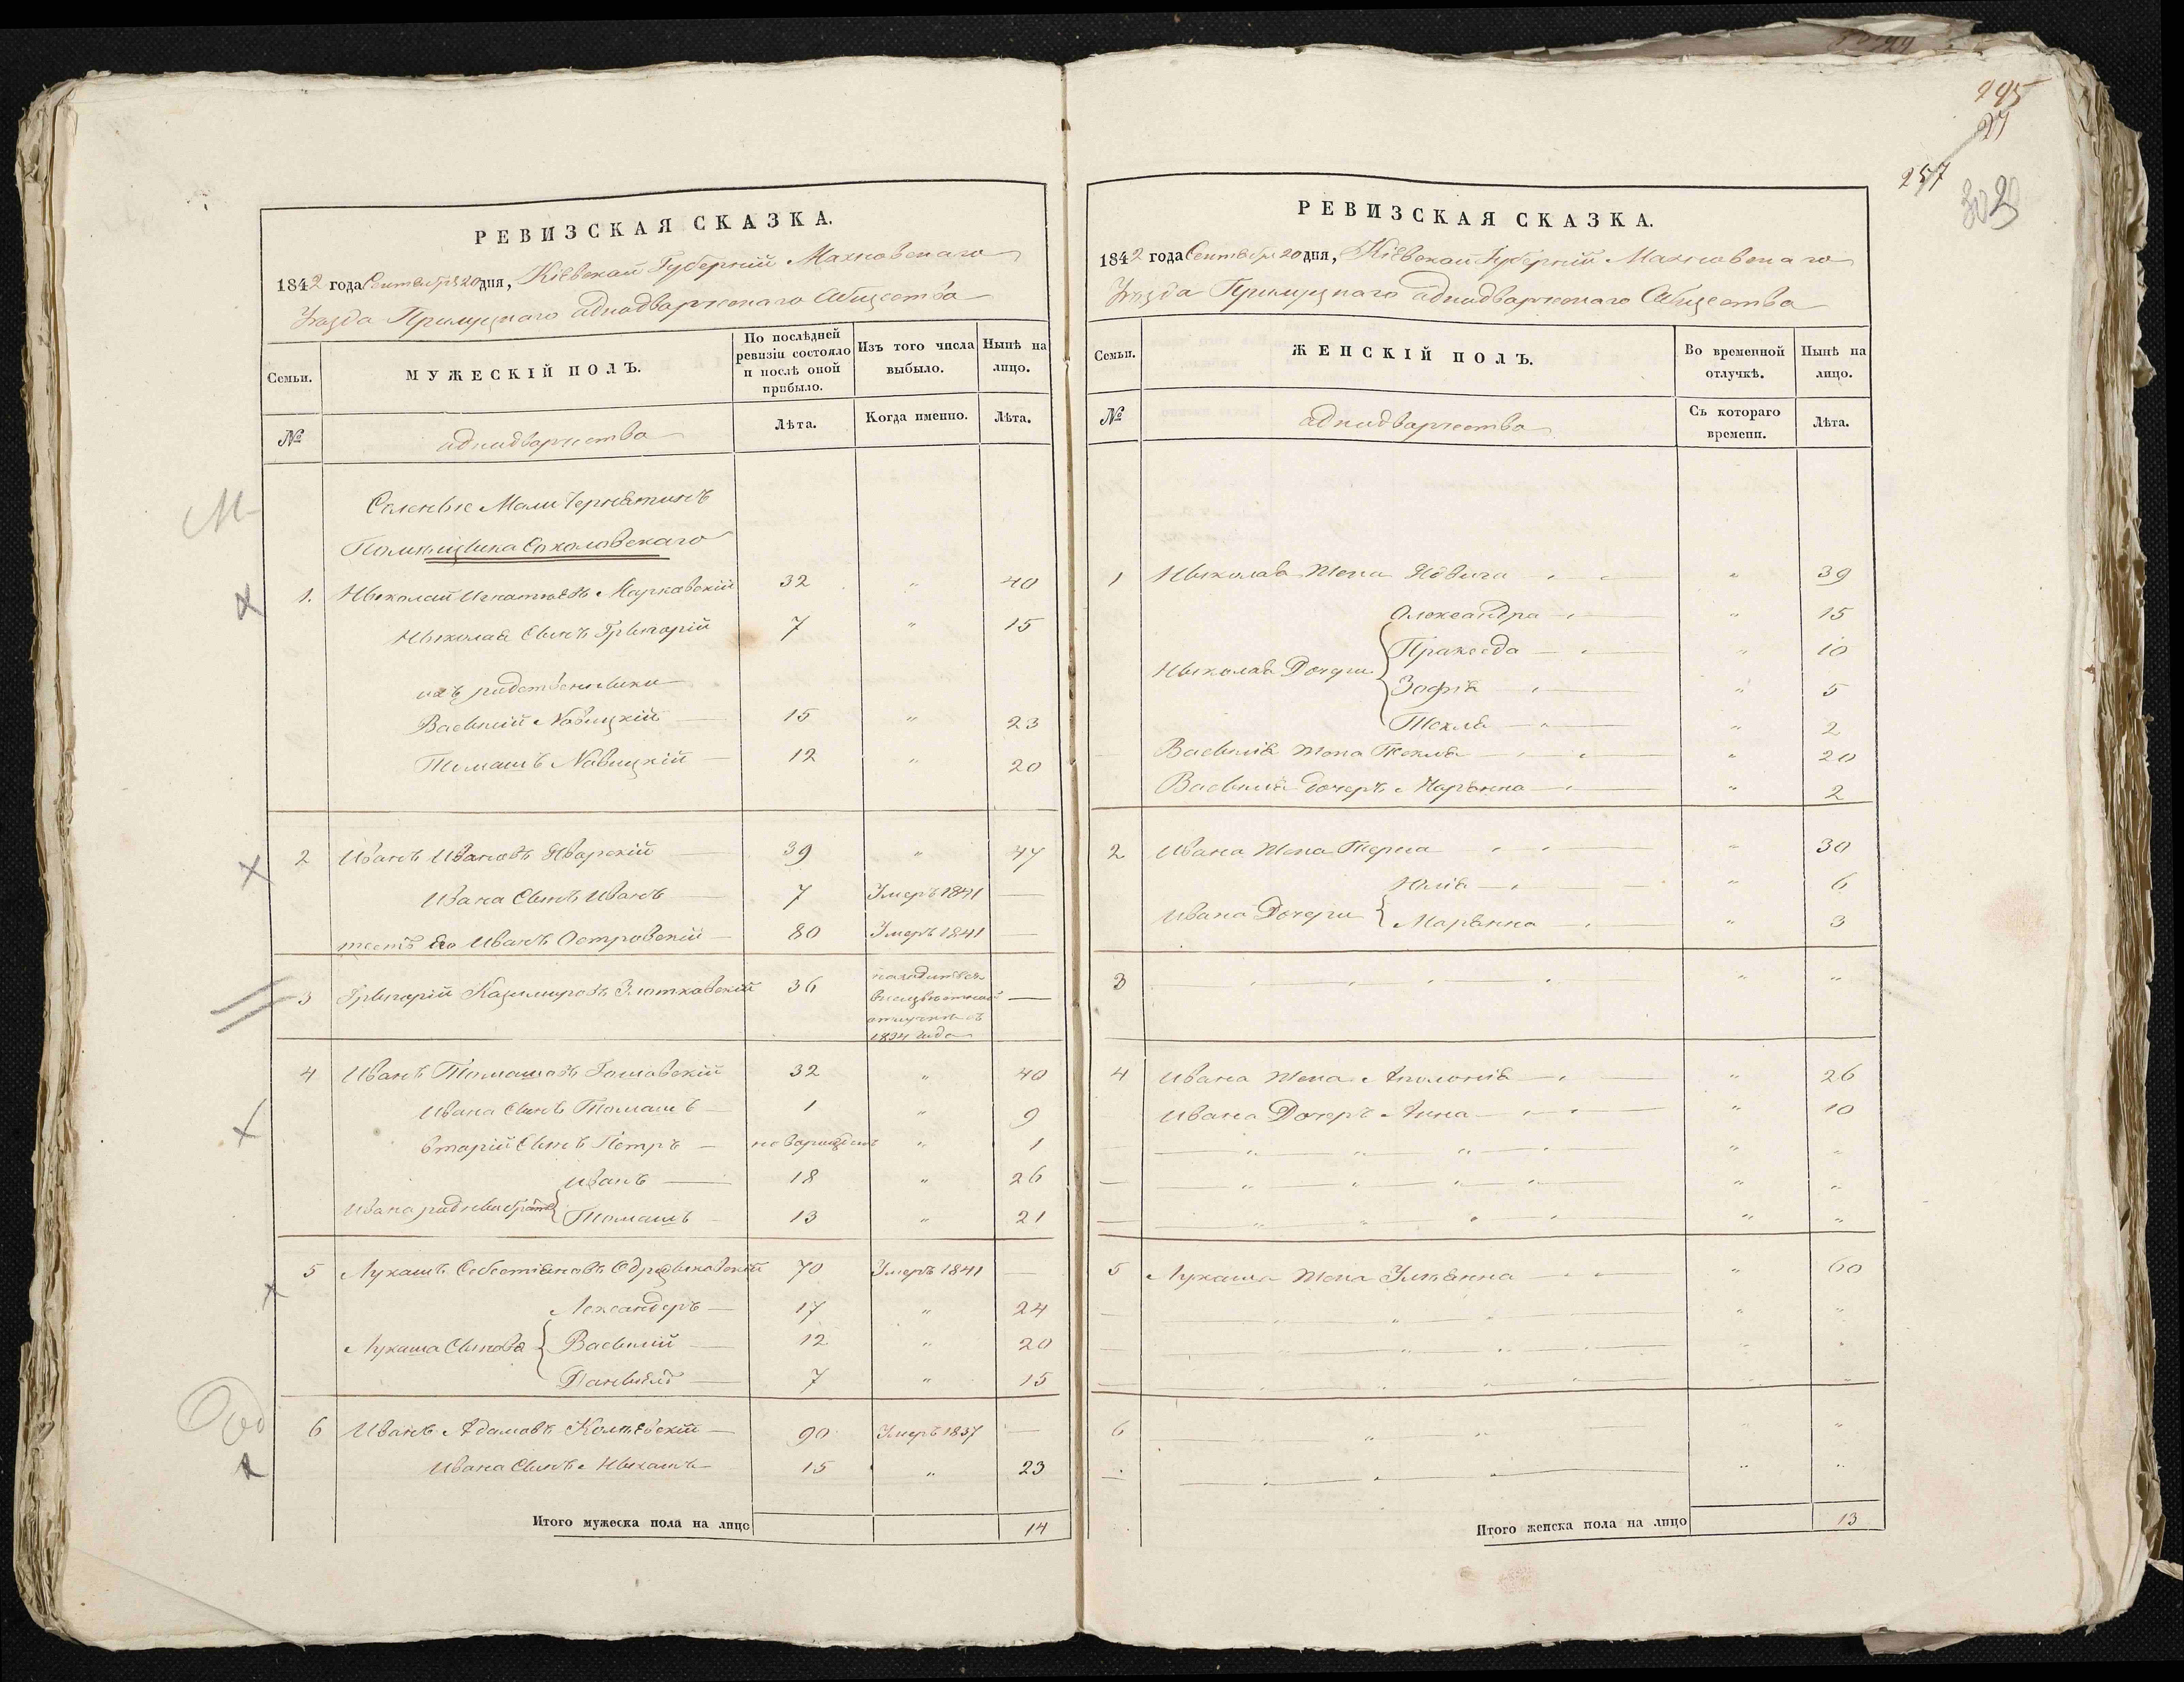 РЕВИЗСКАЯ СКАЗКА.
1842 года Сентября 20 дня, Кіевской Губерніи Махновскаго
Уезда Прилуцкаго аднодворческаго Общества
Семьи.
МУЖЕСКІЙ ПОЛЪ.
По послѣдней ревизіи состояло и послѣ оной прибыло.
Изъ того числа выбыло.
Нынѣ на лицо.
№
аднодворчества
Лѣта.
Когда именно.
Лѣта.
М
Помѣщика Соколовскаго
1. Николай Игнатіевъ Марковскій 32 " 40
Николая Сынъ Григорій 7 " 15
ихъ родственники
Василій Новицкій — 15 " 23
Томашъ Новицкій — 12 " 20
2 Иванъ Ивановъ Яворскій — 39 " 47
Ивана Сынъ Иванъ — 7 Умеръ 1841 —
тесть Его Иванъ Островскій — 80 Умеръ 1841 —
3 Григорій Казимировъ 36 —
1834 года
4 Иванъ Томашовъ 32 " 40
Ивана Сынъ Томашъ — 1 " 9
вторій Сынъ Петръ — новорожденъ " 1
Иванъ — 18 " 26
Ивана родніи братья { Томашъ — 13 " 21
5 Лукашъ Себестіяновъ 70 Умеръ 1841 —
Лександеръ — 17 " 24
Лукаша Синовя { Василій — 12 " 20
7 " 15
6 Иванъ Адамовъ — 90 Умеръ 1837 —
Ивана Сынъ 15 " 23
Итого мужеска пола на лицо 14
295
27
257
302
РЕВИЗСКАЯ СКАЗКА.
1842 года Сентября 20 дня, Кіевской Губерніи Махновскаго
Уезда Прилуцкаго аднодворческаго Общества
Семьи.
ЖЕНСКІЙ ПОЛЪ.
Во временной отлучкѣ.
Нынѣ на лицо.
№
аднодворчества
Съ котораго времени.
Лѣта.
1 Николая Жена Ядвига " 39
Александра " 15
Пракседа " 10
Николая Дочери {
Зофія " 5
Текля " 2
Василія Жена Текля " 20
Василія дочеръ Маріянна " 2
2 Ивана Жена " 30
Юлія " 6
Ивана Дочери { Маріянна " 3
3 " "
4 Ивана Жена Аполонія " 26
Ивана Дочеръ Анна " 10
5 Лукаша Жена Уліянна " 60
6 " "
Итого женска пола на лицо 13